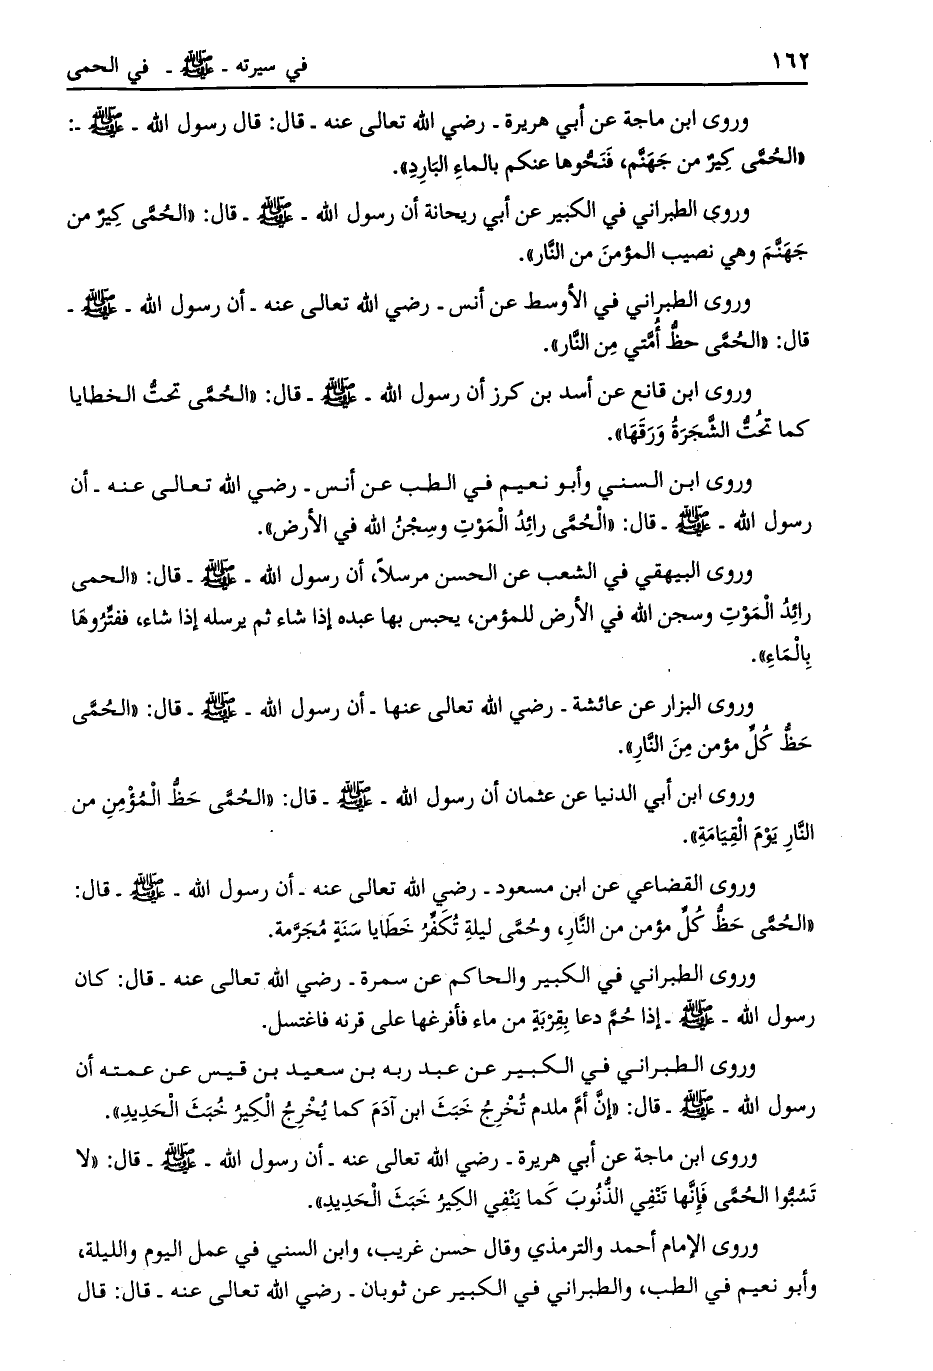 ١٦٢
في سيرته ـ ﷺ ـ في الحمى
وروى ابن ماجة عن أبي هريرة ـ رضي الله تعالى عنه ـ قال: قال رسول الله ـ ﷺ ـ:
«الحُمَّى كِيرٌ من جَهَنَّم، فَنَحُّوها عنكم بالماءِ البَارِدِ».
وروى الطبراني في الكبير عن أبي ريحانة أن رسول الله ـ ﷺ ـ قال: «الحُمَّى كِيرٌ من
جَهَنَّمَ وهي نصيب المؤمن من النَّار».
وروى الطبراني في الأوسط عن أنس ـ رضي الله تعالى عنه ـ أن رسول الله ـ ﷺ ـ
قال: «الحُمَّى حظُّ أُمَّتي مِن النَّار».
وروى ابن قانع عن أسد بن كرز أن رسول الله ـ ﷺ ـ قال: «الحُمَّى تحتُّ الخطايا
كما تحُتُّ الشَّجَرَةُ وَرَقَهَا».
وروى ابن السني وأبو نعيم في الطب عن أنس ـ رضي الله تعالى عنه ـ أن
رسول الله ـ ﷺ ـ قال: «الْحُمَّى رائِدُ الْمَوْتِ وسِجْنُ الله في الأرض».
وروى البيهقي في الشعب عن الحسن مرسلاً، أن رسول الله ـ ﷺ ـ قال: «الحمى
رائِدُ الْمَوْتِ وسجن الله في الأرض للمؤمن، يحبس بها عبده إذا شاء ثم يرسله إذا شاء، ففتِّرُوهَا
بِالْمَاءِ».
وروى البزار عن عائشة ـ رضي الله تعالى عنها ـ أن رسول الله ـ ﷺ ـ قال: «الحُمَّى
حَظُّ كُلِّ مؤمن مِنَ النَّارِ».
وروى ابن أبي الدنيا عن عثمان أن رسول الله ـ ﷺ ـ قال: «الحُمَّى حَظُّ الْمُؤْمِنِ من
النَّارِ يَوْمَ الْقِيَامَةِ».
وروى القضاعي عن ابن مسعود ـ رضي الله تعالى عنه ـ أن رسول الله ـ ﷺ ـ قال:
«الحُمَّى حَظُّ كُلِّ مؤمن من النَّارِ، وحُمَّى ليلةِ تُكَفِّرُ خَطَايا سَنَةٍ مُجَرَّمة.
وروى الطبراني في الكبير والحاكم عن سمرة ـ رضي الله تعالى عنه ـ قال: كان
رسول الله ـ ﷺ ـ إذا حُمَّ دعا بِقِرْبَةٍ من ماء فأفرغها على قرنه فاغتسل.
وروى الطبراني في الكبير عن عبد ربه بن سعيد بن قيس عن عمته أن
رسول الله ـ ﷺ ـ قال: «إنَّ أمَّ ملدم تُخْرِجُ خَبَثَ ابن آدَمَ كما يُخْرِجُ الْكِيرُ خُبَثَ الْحَدِيدِ».
وروى ابن ماجة عن أبي هريرة ـ رضي الله تعالى عنه ـ أن رسول الله ـ ﷺ ـ قال: «لا
تَسُبُّوا الحُمَّى فَإِنَّها تَنْفِي الذُّنُوبَ كَما يَنْفِي الكِيرُ خَبَثَ الْحَدِيدِ».
وروى الإمام أحمد والترمذي وقال حسن غريب، وابن السني في عمل اليوم والليلة،
وأبو نعيم في الطب، والطبراني في الكبير عن ثوبان ـ رضي الله تعالى عنه ـ قال: قال